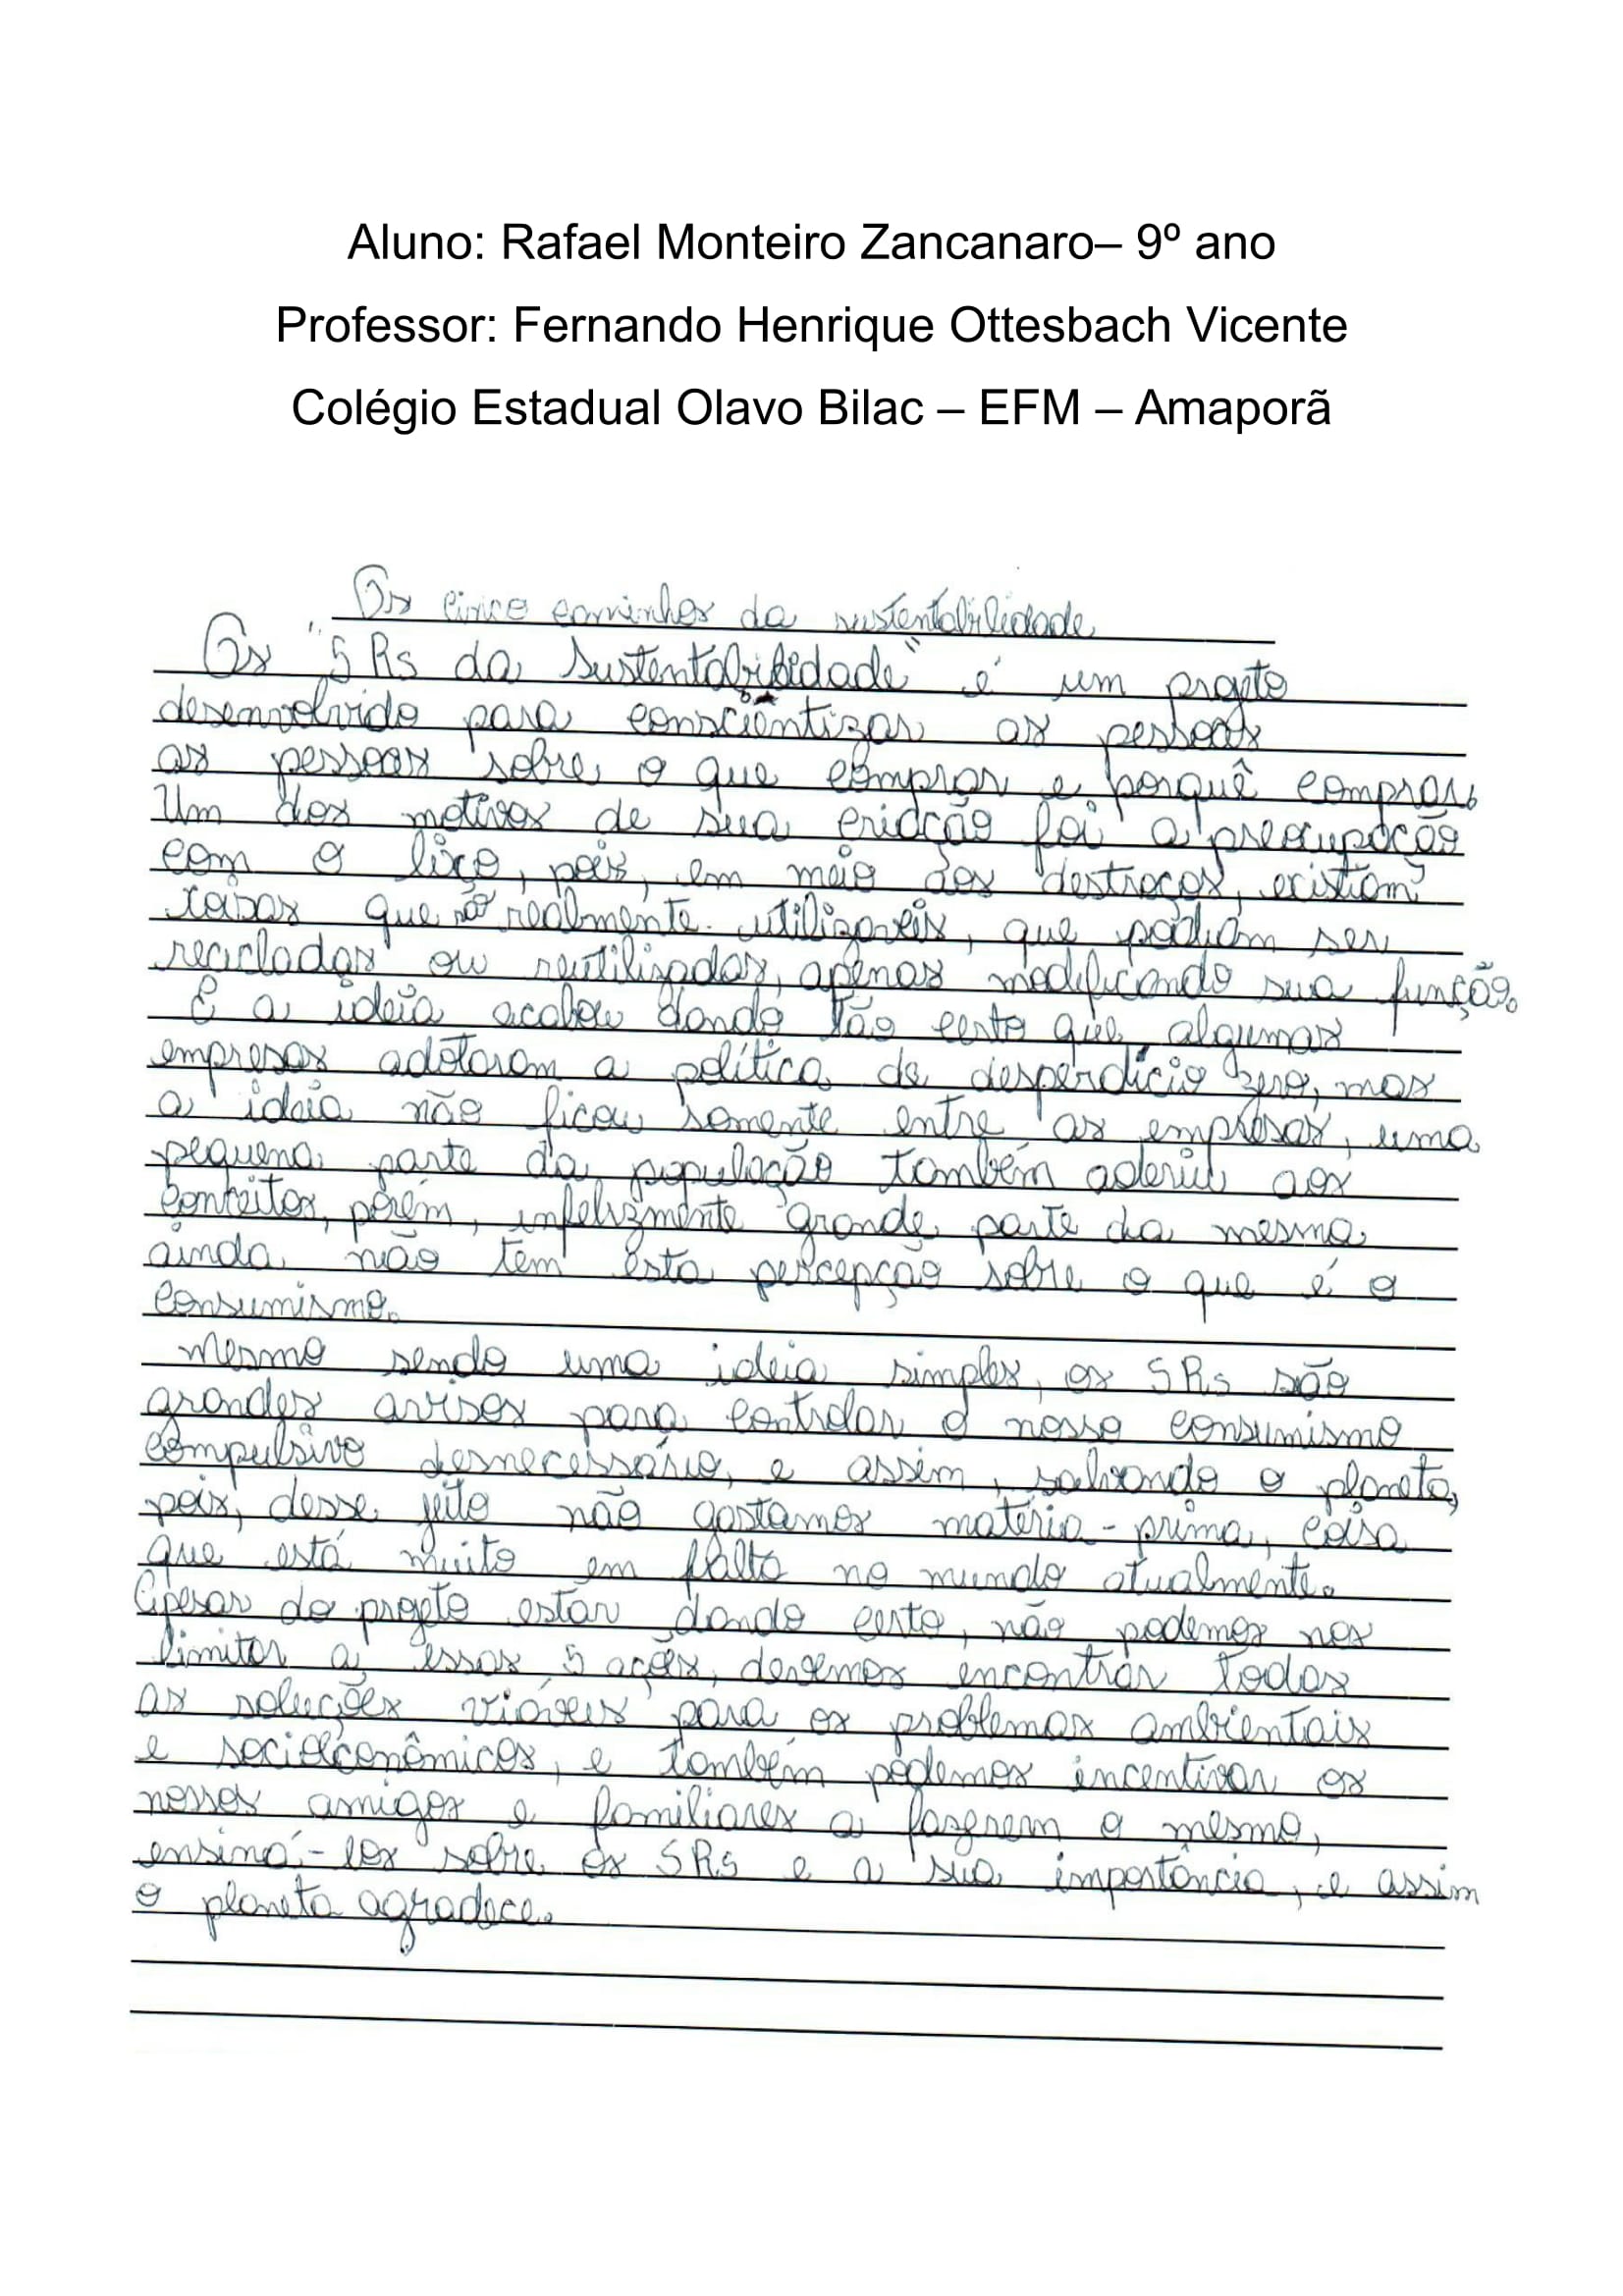 Aluno: Rafael Monteiro Zancanaro– 9º ano
Professor: Fernando Henrique Ottesbach Vicente
Colégio Estadual Olavo Bilac – EFM – Amaporã
Os cinco caminhos da sustentabilidade
Os "5 Rs da Sustentabilidade" é um projeto
desenvolvido para conscientizar as pessoas
as pessoas sobre o que comprar e porquê comprar.
Um dos motivos de sua criação foi a preocupação
com o lixo, pois, em meio aos destroços, existiam
coisas que são realmente utilizáveis, que podiam ser
recicladas ou reutilizadas, apenas modificando sua função.
E a ideia acabou dando tão certo que algumas
empresas adotaram a política de desperdício zero, mas
a ideia não ficou somente entre as empresas, uma
pequena parte da população também aderiu aos
conceitos, porém, infelizmente grande parte da mesma
ainda não tem esta percepção sobre o que é o
consumismo.
Mesmo sendo uma ideia simples, os 5Rs são
grandes avisos para controlar o nosso consumismo
compulsivo desnecessário, e assim, salvando o planeta,
pois, desse jeito não gastamos matéria-prima, coisa
que está muito em falta no mundo atualmente.
Apesar do projeto estar dando certo, não podemos nos
limitar a essas 5 ações, devemos encontrar todas
as soluções viáveis para os problemas ambientais
e socioeconômicos, e também podemos incentivar os
nossos amigos e familiares a fazerem o mesmo,
ensiná-los sobre os 5Rs e a sua importância, e assim
o planeta agradece.